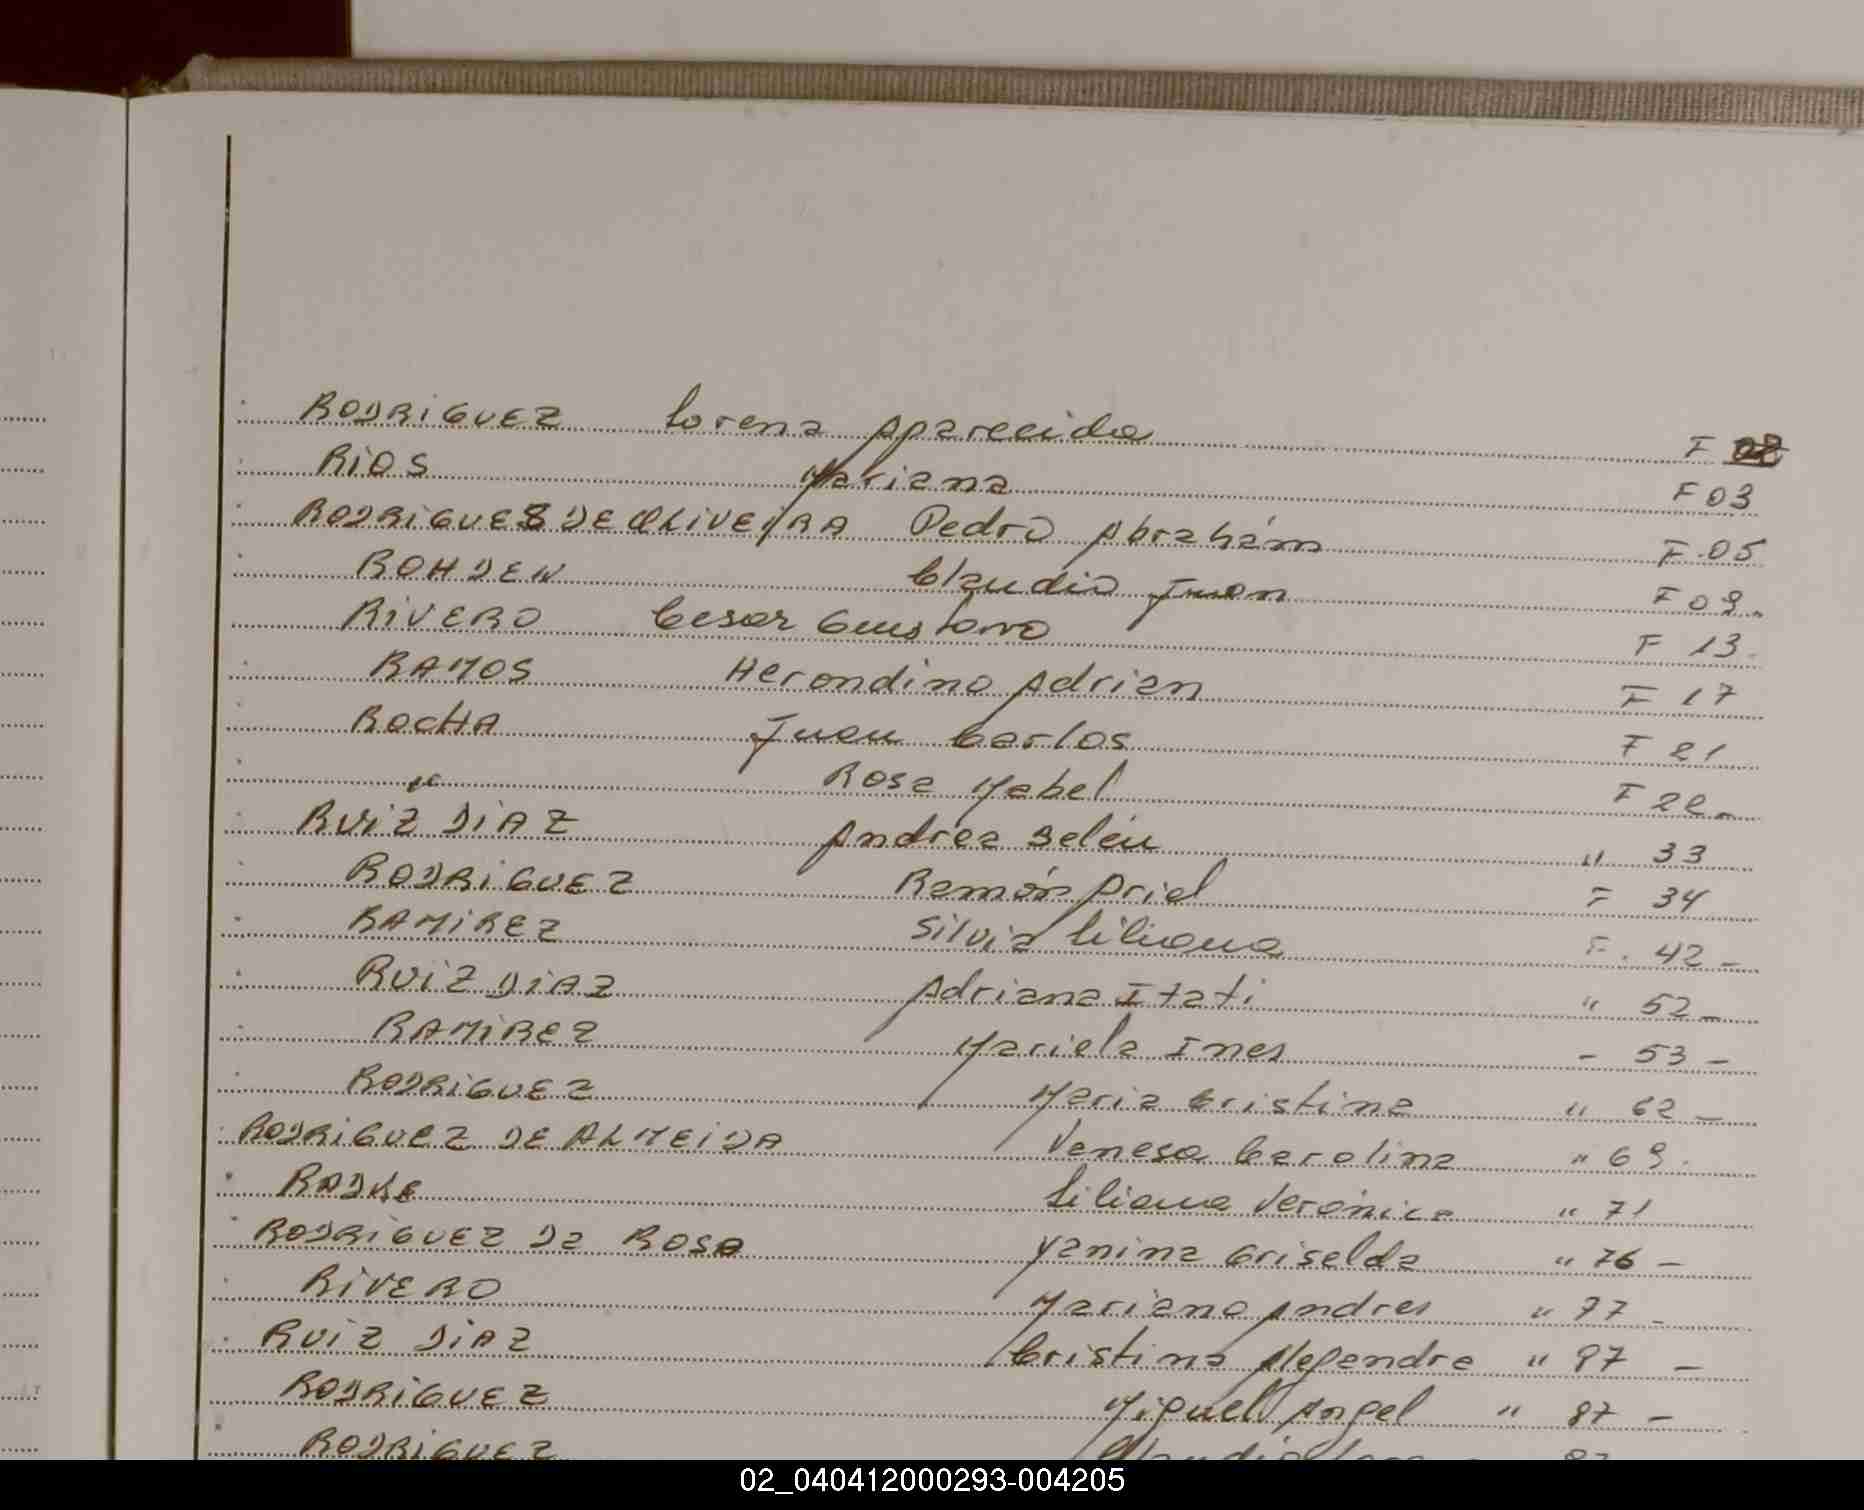 RODRIGUEZ Lorena Aparecida F 02
RIOS Mariana F 03
RODRIGUES DE OLIVEIRA Pedro Abrahám F. 05
ROHDEN Claudio Juan F 09.
RIVERO Cesar Gustavo F 13.
RAMOS Herondino Adrian F 17
ROCHA Juan Carlos F 21
" Rosa Mabel F 22.
RUIZ DIAZ Andrea Belén " 33
RODRIGUEZ Ramón Ariel F 34
RAMIREZ Silvia Liliana F. 42 -
RUIZ DIAZ Adriana Itati " 52 -
RAMIREZ Mariela Ines - 53 -
RODRIGUEZ Maria Cristina " 62 -
RODRIGUEZ DE ALMEIDA Vanesa Carolina " 69.
RADKE Liliana Verónica " 71
RODRIGUEZ Da ROSA Yanina Griselda " 76 -
RIVERO Mariano Andres " 77 -
RUIZ DIAZ Cristina Alejandra " 87 -
RODRIGUEZ Miguel Angel " 87 -
RODRIGUEZ
02_040412000293-004205